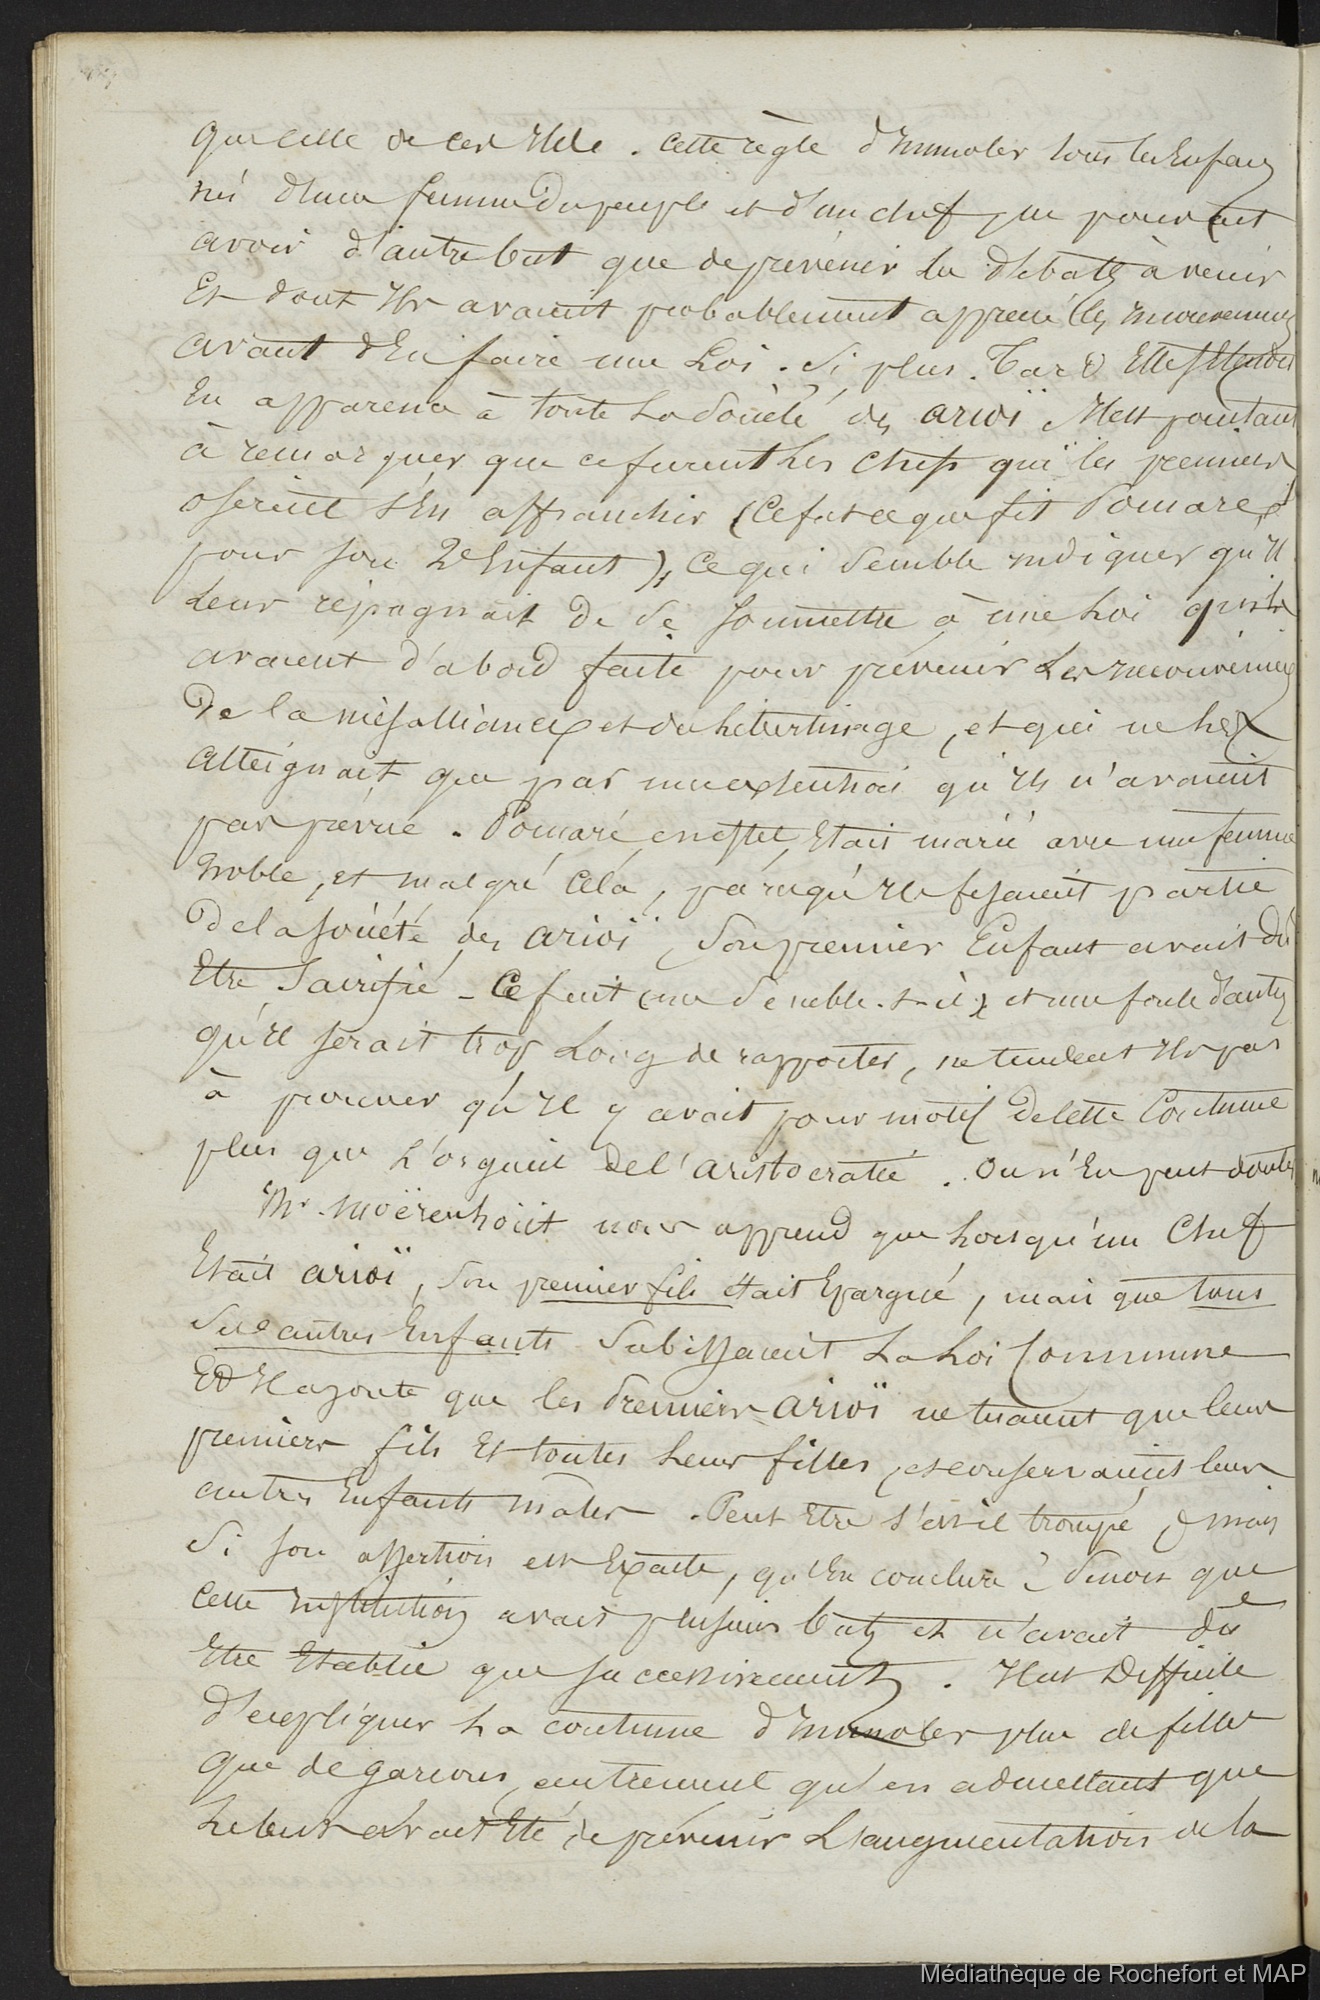 que celle de ces Iles. cette règle d'Immoler tous les Enfans
nés d'une femme du peuple et d'un chef, ne pouvait
avoir d'autre but que de prévenir les débats à venir
Et dont Ils avaient probablement apprécié les Inconveniens
avant d'En faire une Loi. Si plus Tard Elle s'Etendit
En apparence à toute La Société des arioï, Il est pourtant
à remarquer que ce furent Les Chefs qui les premiers
oserent s'En affranchir (Ce fut ce que fit Pomaré
pour son 2e Enfant), Ce qui semble indiquer qu'Il
Leur répugnait De Se soumettre à une Loi qu'ils
avaient d'abord faite pour prévenir Les Inconvéniens
De la mésalliance et du Libertinage, et qui ne Les
atteignait que par une extention qu'Ils n'avaient
pas prévue. Pomaré, en effet, Etait marié avec une femme
noble, et malgré Céla, parcequ'Ils fesaient partie
De la Société des arioï, Son premier Enfant avait dû
Etre Sacrifié - Ce fait (me semble-t-il) et une foule d'autres
qu'Il serait trop Long de rapporter, ne tendent Ils pas
à prouver qu'Il y avait pour motif De cette Coutume
plus que L'orgueil de l'aristocratie. On n'En peut douter
Mr. Moërenhoüt nous apprend que Lorsqu'un Chef
Etait arioï, Son premier fils était Epargné, mais que tous
Ses autres Enfants Subissaient La Loi Commune
Et Il ajoute que les Premiers arioï ne tuaient que leurs
premiers fils Et toutes Leurs filles, et conservaient leurs
autres Enfants mâles. Peut Etre s'est il trompé, mais
Si son assertion est Exacte, qu'En conclure ? Sinon que
cette Institution avait plusieurs buts et n'avait dû
Etre Etablie que successivement. Il est Difficile
d'expliquer La coutume d'Immoler plus de filles
que de garcons, autrement qu'en admettant que
Le but avait Eté de prévenir L'augmentation de la
Médiathèque de Rochefort et MAP